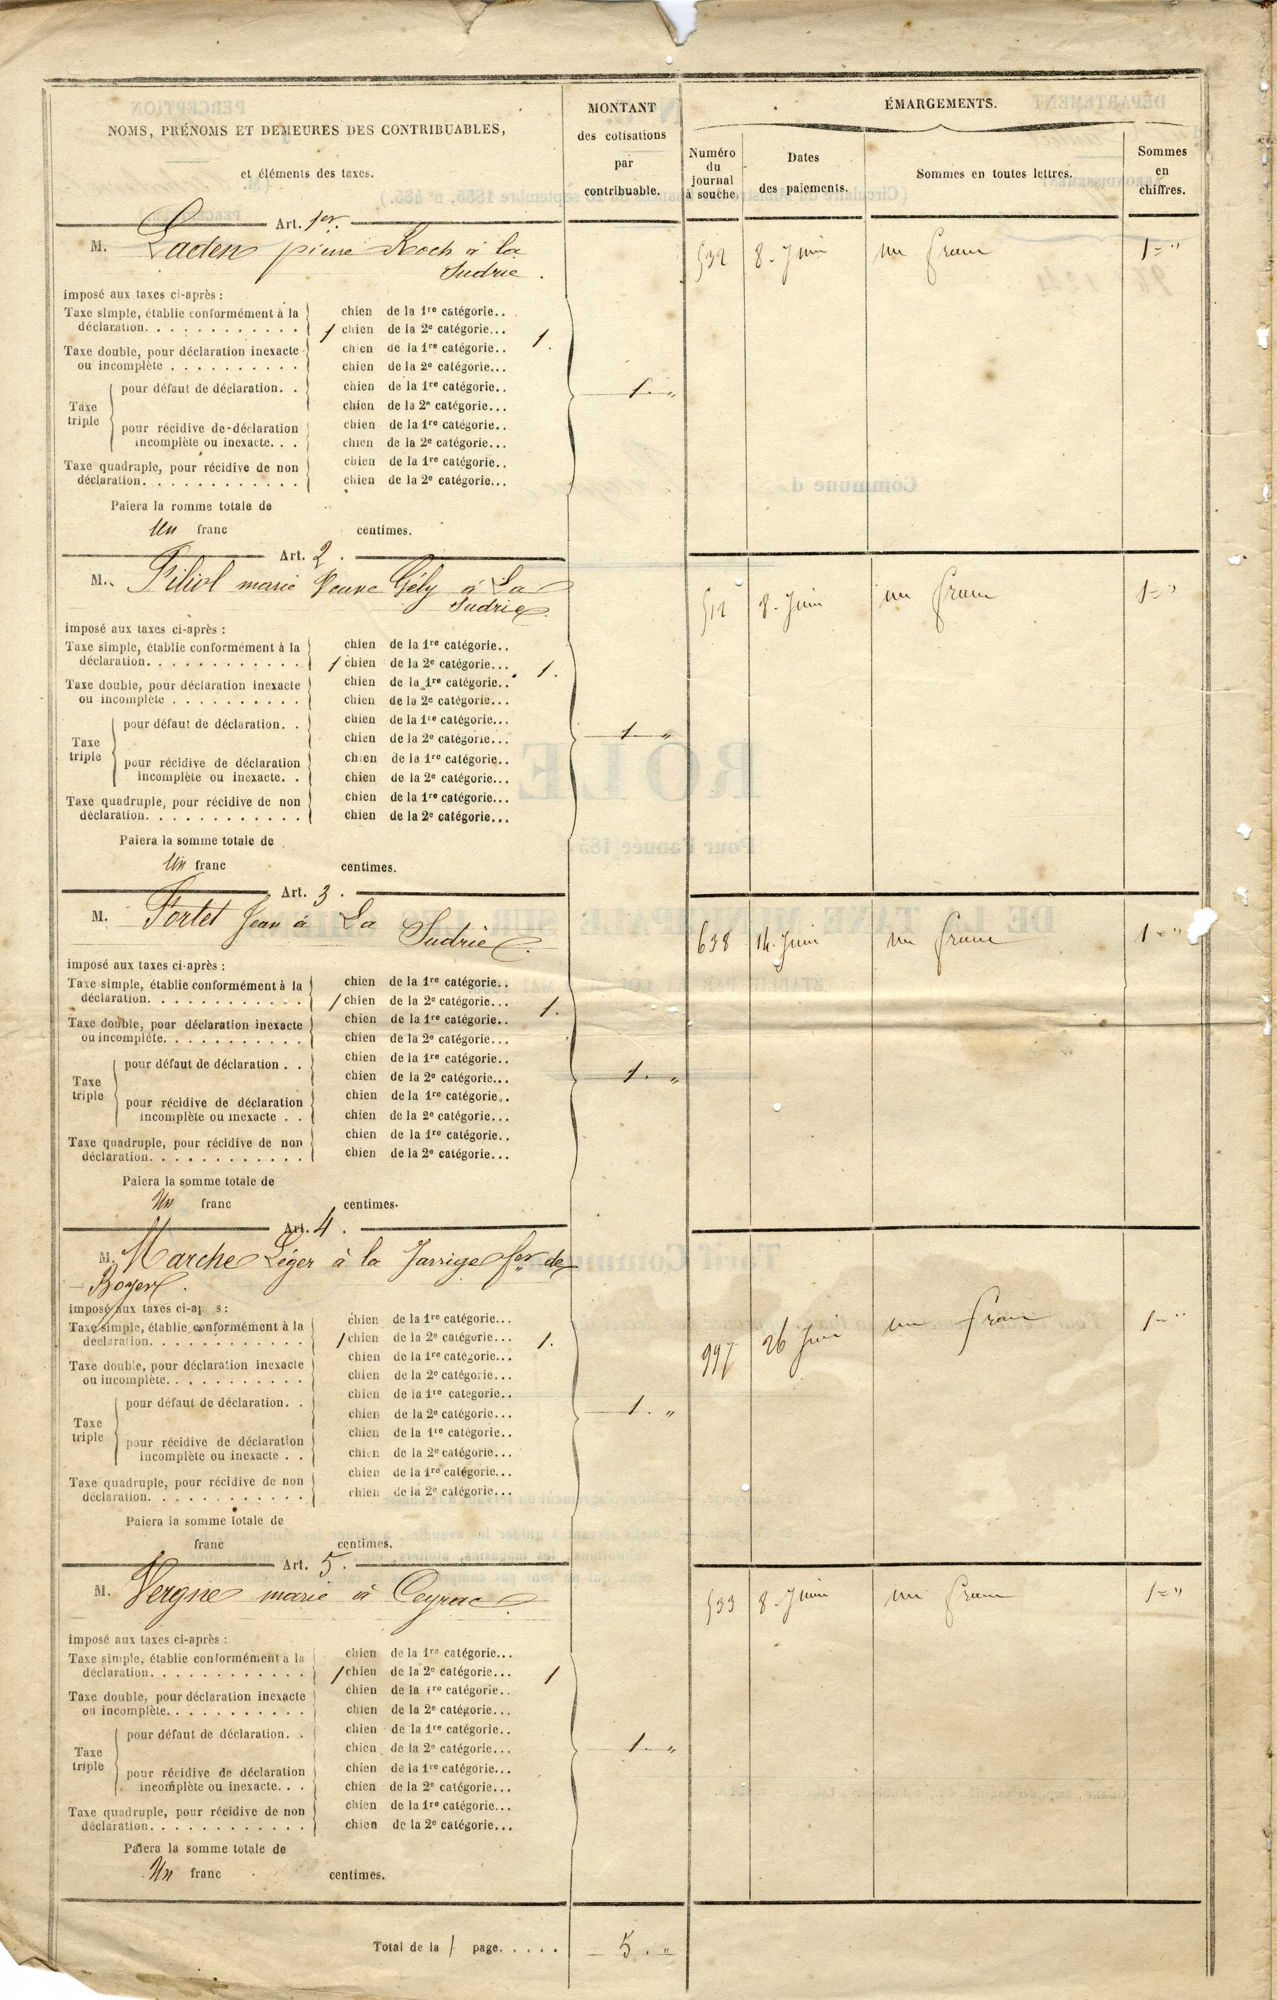 NOMS, PRÉNOMS ET DEMEURES DES CONTRIBUABLES,
et éléments des taxes.
MONTANT
des cotisations
par
contribuable.
ÉMARGEMENTS.
Numéro
du
journal
à souche.
Dates
des paiements.
Sommes en toutes lettres.
Sommes
en
chiffres.
Art. 1er.
M. Laden pierre Roch à la
Sudrie.
532 8. Juin un franc 1="
imposé aux taxes ci-après :
Taxe simple, établie conformément à la
déclaration. . . . . . . . . . . .
chien de la 1re catégorie..
1 chien de la 2e catégorie... 1.
Taxe double, pour déclaration inexacte
ou incomplète . . . . . . . . . .
chien de la 1re catégorie..
chien de la 2e catégorie...
Taxe
triple
pour défaut de déclaration. .
chien de la 1re catégorie..
chien de la 2e catégorie...
1. "
pour récidive de déclaration
incomplète ou inexacte. . .
chien de la 1re catégorie..
chien de la 2e catégorie...
Taxe quadruple, pour récidive de non
déclaration. . . . . . . . . . . .
chien de la 1re catégorie..
chien de la 2e catégorie...
Paiera la somme totale de
Un franc centimes.
Art. 2.
M. Filiol marie Veuve Gély à La
Sudrie.
512 8. Juin un franc 1="
imposé aux taxes ci-après :
Taxe simple, établie conformément à la
déclaration. . . . . . . . . . . .
chien de la 1re catégorie..
1 chien de la 2e catégorie... 1.
Taxe double, pour déclaration inexacte
ou incomplète . . . . . . . . . .
chien de la 1re catégorie..
chien de la 2e catégorie...
Taxe
triple
pour défaut de déclaration. .
chien de la 1re catégorie..
chien de la 2e catégorie...
1. "
pour récidive de déclaration
incomplète ou inexacte. .
chien de la 1re catégorie..
chien de la 2e catégorie...
Taxe quadruple, pour récidive de non
déclaration. . . . . . . . . . . .
chien de la 1re catégorie...
chien de la 2e catégorie...
Paiera la somme totale de
Un franc centimes.
Art. 3.
M. Fortet Jean à La
Sudrie.
638 14. Juin un franc 1="
imposé aux taxes ci-après :
Taxe simple, établie conformément à la
déclaration. . . . . . . . . . . .
chien de la 1re catégorie..
1 chien de la 2e catégorie... 1.
Taxe double, pour déclaration inexacte
ou incomplète. . . . . . . . . . .
chien de la 1re catégorie..
chien de la 2e catégorie...
Taxe
triple
pour défaut de déclaration . .
chien de la 1re catégorie..
chien de la 2e catégorie...
1. "
pour récidive de déclaration
incomplète ou inexacte . .
chien de la 1re catégorie..
chien de la 2e catégorie...
Taxe quadruple, pour récidive de non
déclaration. . . . . . . . . . . .
chien de la 1re catégorie..
chien de la 2e catégorie...
Paiera la somme totale de
Un franc centimes.
Art. 4.
M. Marche Léger à la Jarrige fer de
Boyer.
997 26 Juin un franc 1="
imposé aux taxes ci-ap s :
Taxe simple, établie conformément à la
déclaration. . . . . . . . . . . .
chien de la 1re catégorie...
1 chien de la 2e catégorie... 1.
Taxe double, pour déclaration inexacte
ou incomplète. . . . . . . . . . .
chien de la 1re catégorie...
chien de la 2e catégorie...
Taxe
triple
pour défaut de déclaration. .
chien de la 1re catégorie..
chien de la 2e catégorie...
1. "
pour récidive de déclaration
incomplète ou inexacte . .
chien de la 1re catégorie...
chien de la 2e catégorie...
Taxe quadruple, pour récidive de non
déclaration. . . . . . . . . . . .
chien de la 1re catégorie...
chien de la 2e catégorie...
Paiera la somme totale de
franc centimes.
Art. 5.
M. Vergne marie à Ceyrac.
533 8. Juin un franc 1="
imposé aux taxes ci-après :
Taxe simple, établie conformément à la
déclaration. . . . . . . . . . . .
chien de la 1re catégorie...
1 chien de la 2e catégorie... 1
Taxe double, pour déclaration inexacte
ou incomplète. . . . . . . . . . .
chien de la 1re catégorie..
chien de la 2e catégorie...
Taxe
triple
pour défaut de déclaration. .
chien de la 1re catégorie..
chien de la 2e catégorie...
1. "
pour récidive de déclaration
incomplète ou inexacte. . .
chien de la 1re catégorie...
chien de la 2e catégorie...
Taxe quadruple, pour récidive de non
déclaration. . . . . . . . . . . .
chien de la 1re catégorie...
chien de la 2e catégorie...
Paiera la somme totale de
Un franc centimes.
Total de la 1 page. . . . . 5. "